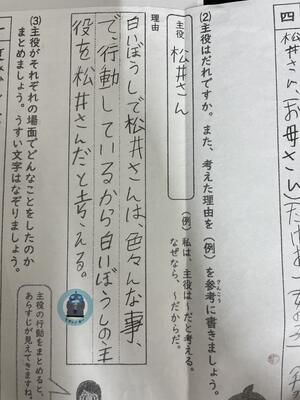 四
松井さん
(お母さん)
(2)主役はだれですか。また、考えた理由を(例)を参考に書きましょう。
(例)私は、主役は〜だと考える。
なぜなら、〜だからだ。
主役
松井さん
理由
白いぼうしで松井さんは、色々んな事、
で、行動しているから白いぼうしの主
役を松井さんだと考える。
(3)主役がそれぞれの場面でどんなことをしたのか
まとめましょう。うすい文字はなぞりましょう。
主役の行動をまとめると、
あらすじが見えてきますね。